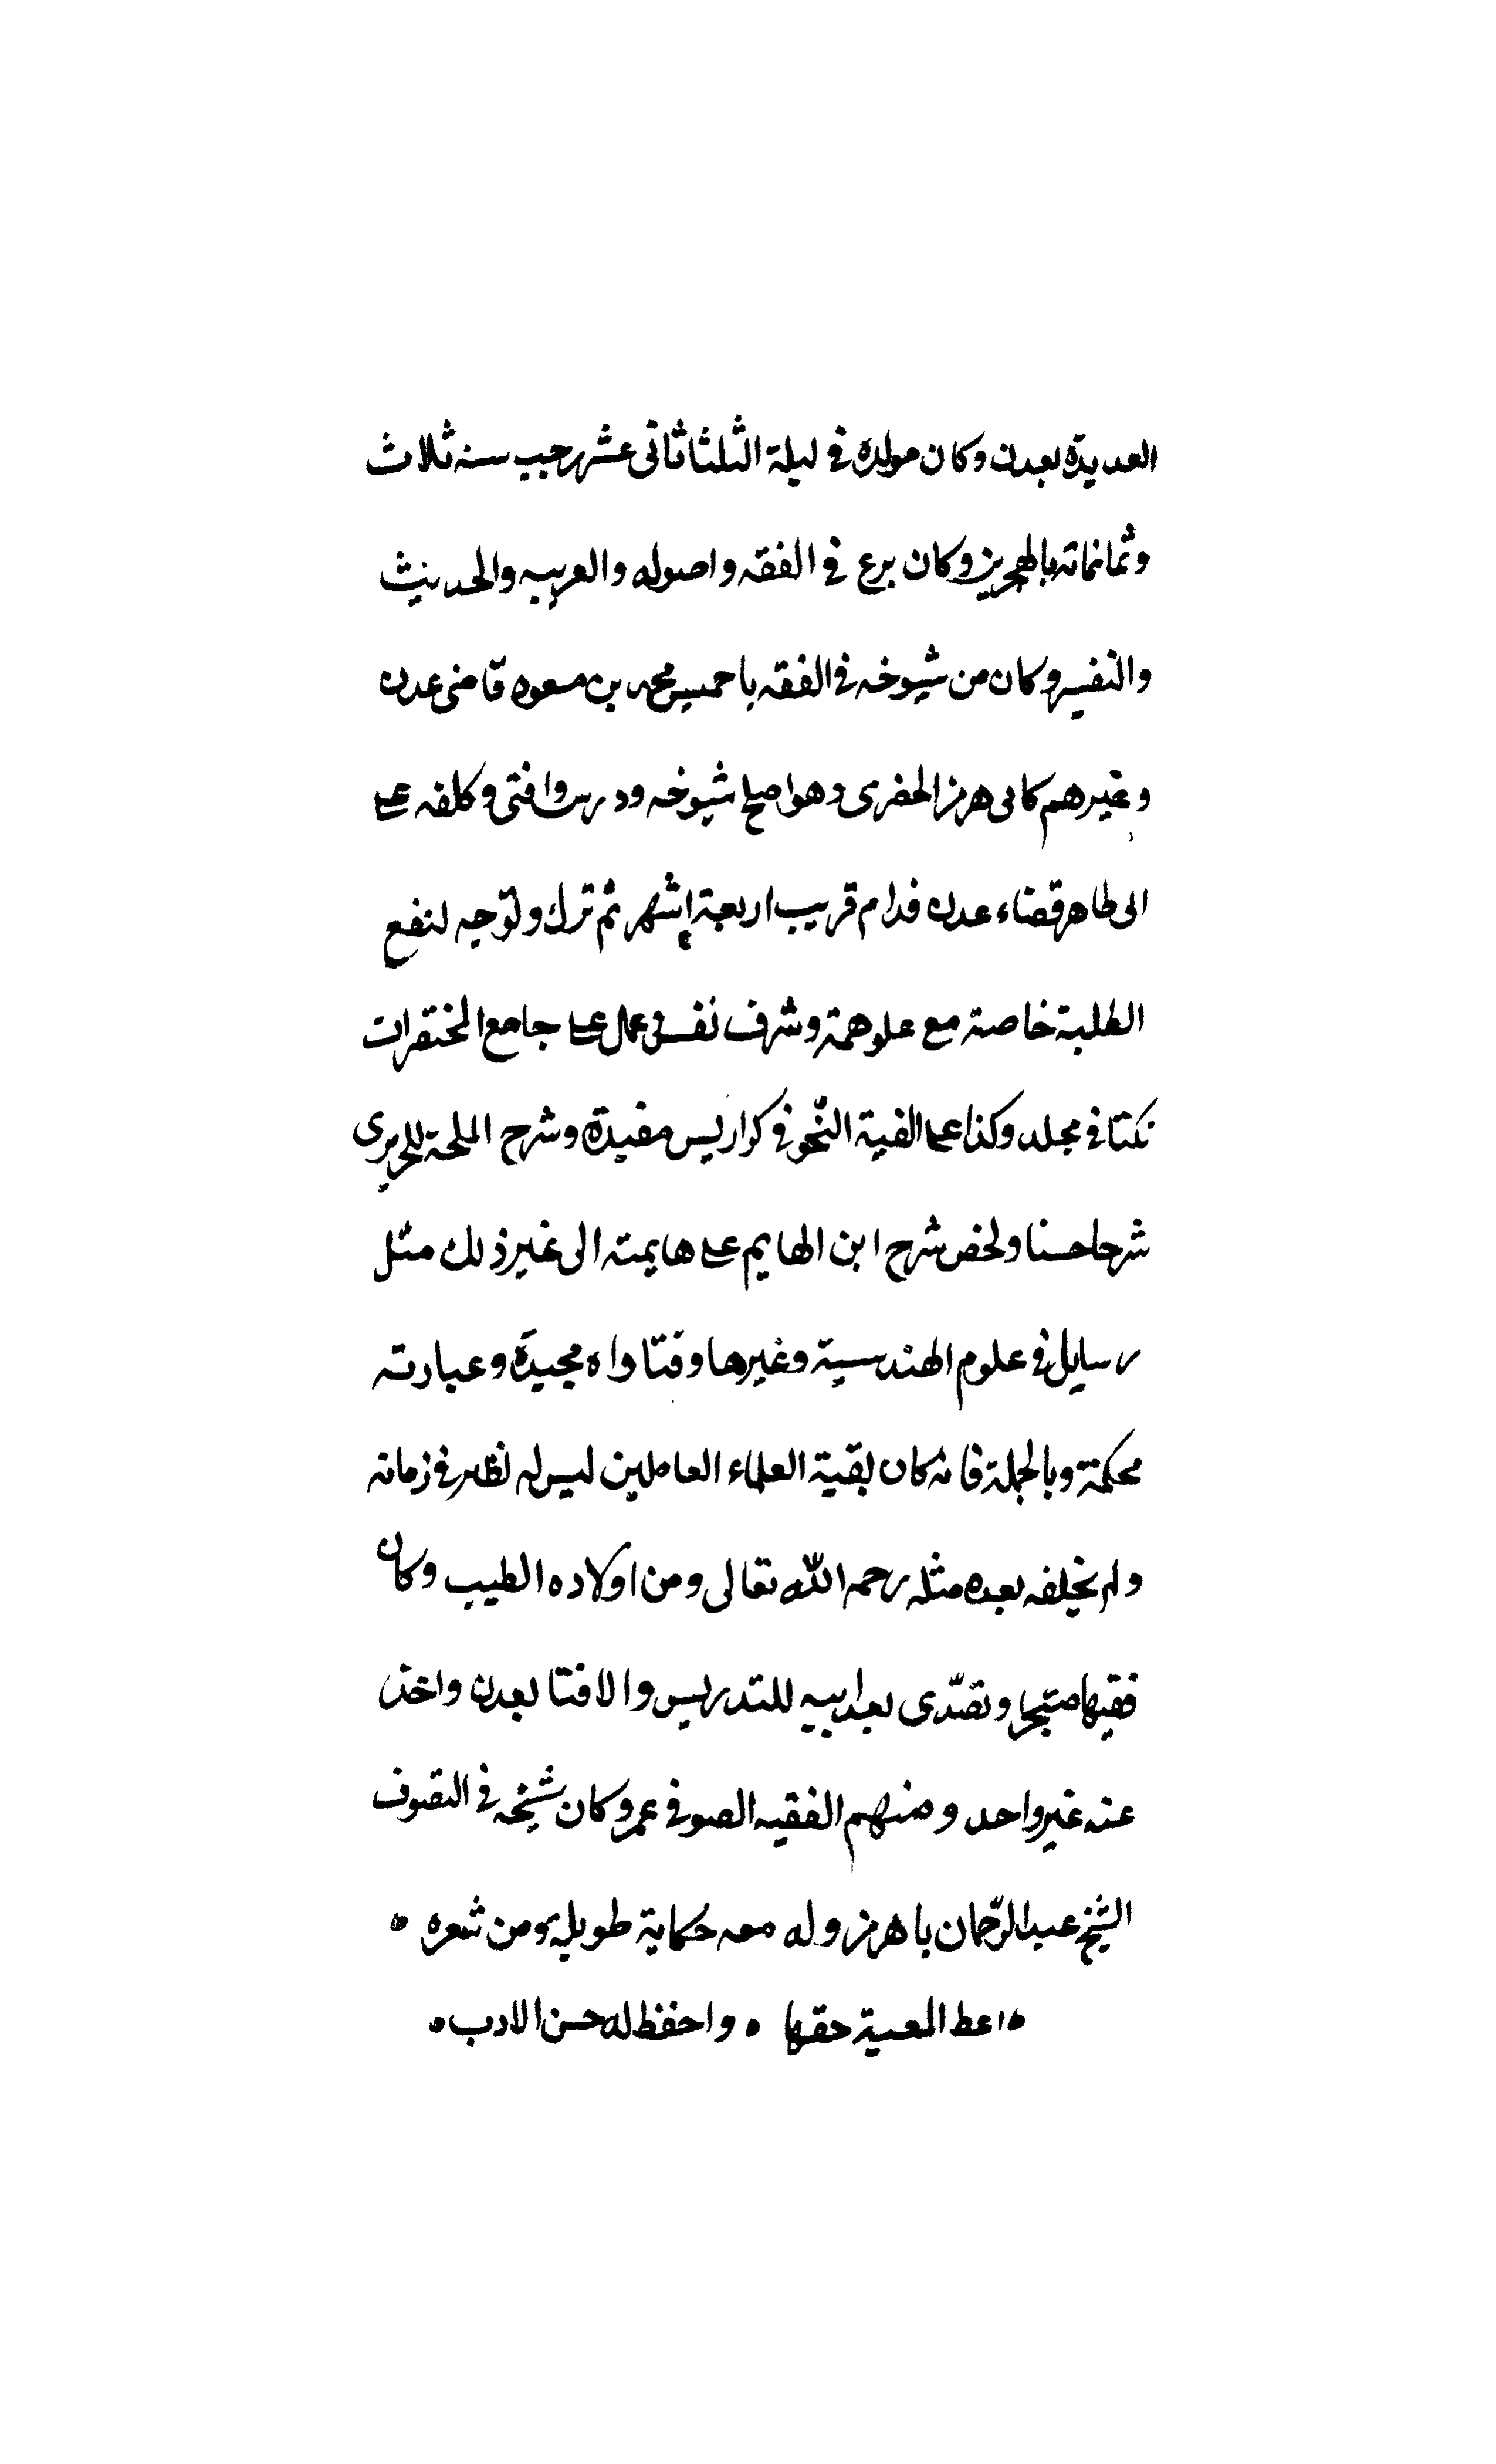 العديدة بعدن وكان مولده في ليلة الثلثا ثاني عشر رجب سنه ثلاث
وثمانمائه بالهجرين وكان برع في الفقه واصوله والعربيه والحديث
والتفسير وكان من شيوخه في الفقه باحميس محمد بن مسعود قاضي عدن
وغيرهم كابى هرمز الحضرى وهو اصلح شيوخه ودرس وافتى وكلفه على
الى طاهر قضاء عدن فدام قريب اربعة اشهر ثم ترك وتوجه لنفع
الطلبة خاصة مع علو همة وشرف نفس عمل على جامع المختصرات
نكتا في مجلد وكذا على الفية النّحو في كراريس مفيدة وشرح الملحة للحريرى
شرحا حسنا ولخص شرح ابن الهايم على هايمته الى غير ذلك مثل
رسايل في علوم الهندسية وغيرها وفتاواه مجيدة وعبارته
محكمة وبالجملة فانه كان بقية العلماء العاملين ليس له نظير في زمانه
ولم يخلفه بعده مثله رحمه الله تعالى ومن اولاده الطيب وكان
فقيها متبحرا وتصّدى بعد ابيه للتدريس والافتا بعدن واخذ
عنه غير واحد ومنهم الفقيه الصوفي عمر وكان شيخه في التصوف
الشيخ عبد الرّحمان باهرمز وله معه حكاية طويلة ومن شعره ه
ه اعط المعية حقها ه واحفظ له حسن الادب ه